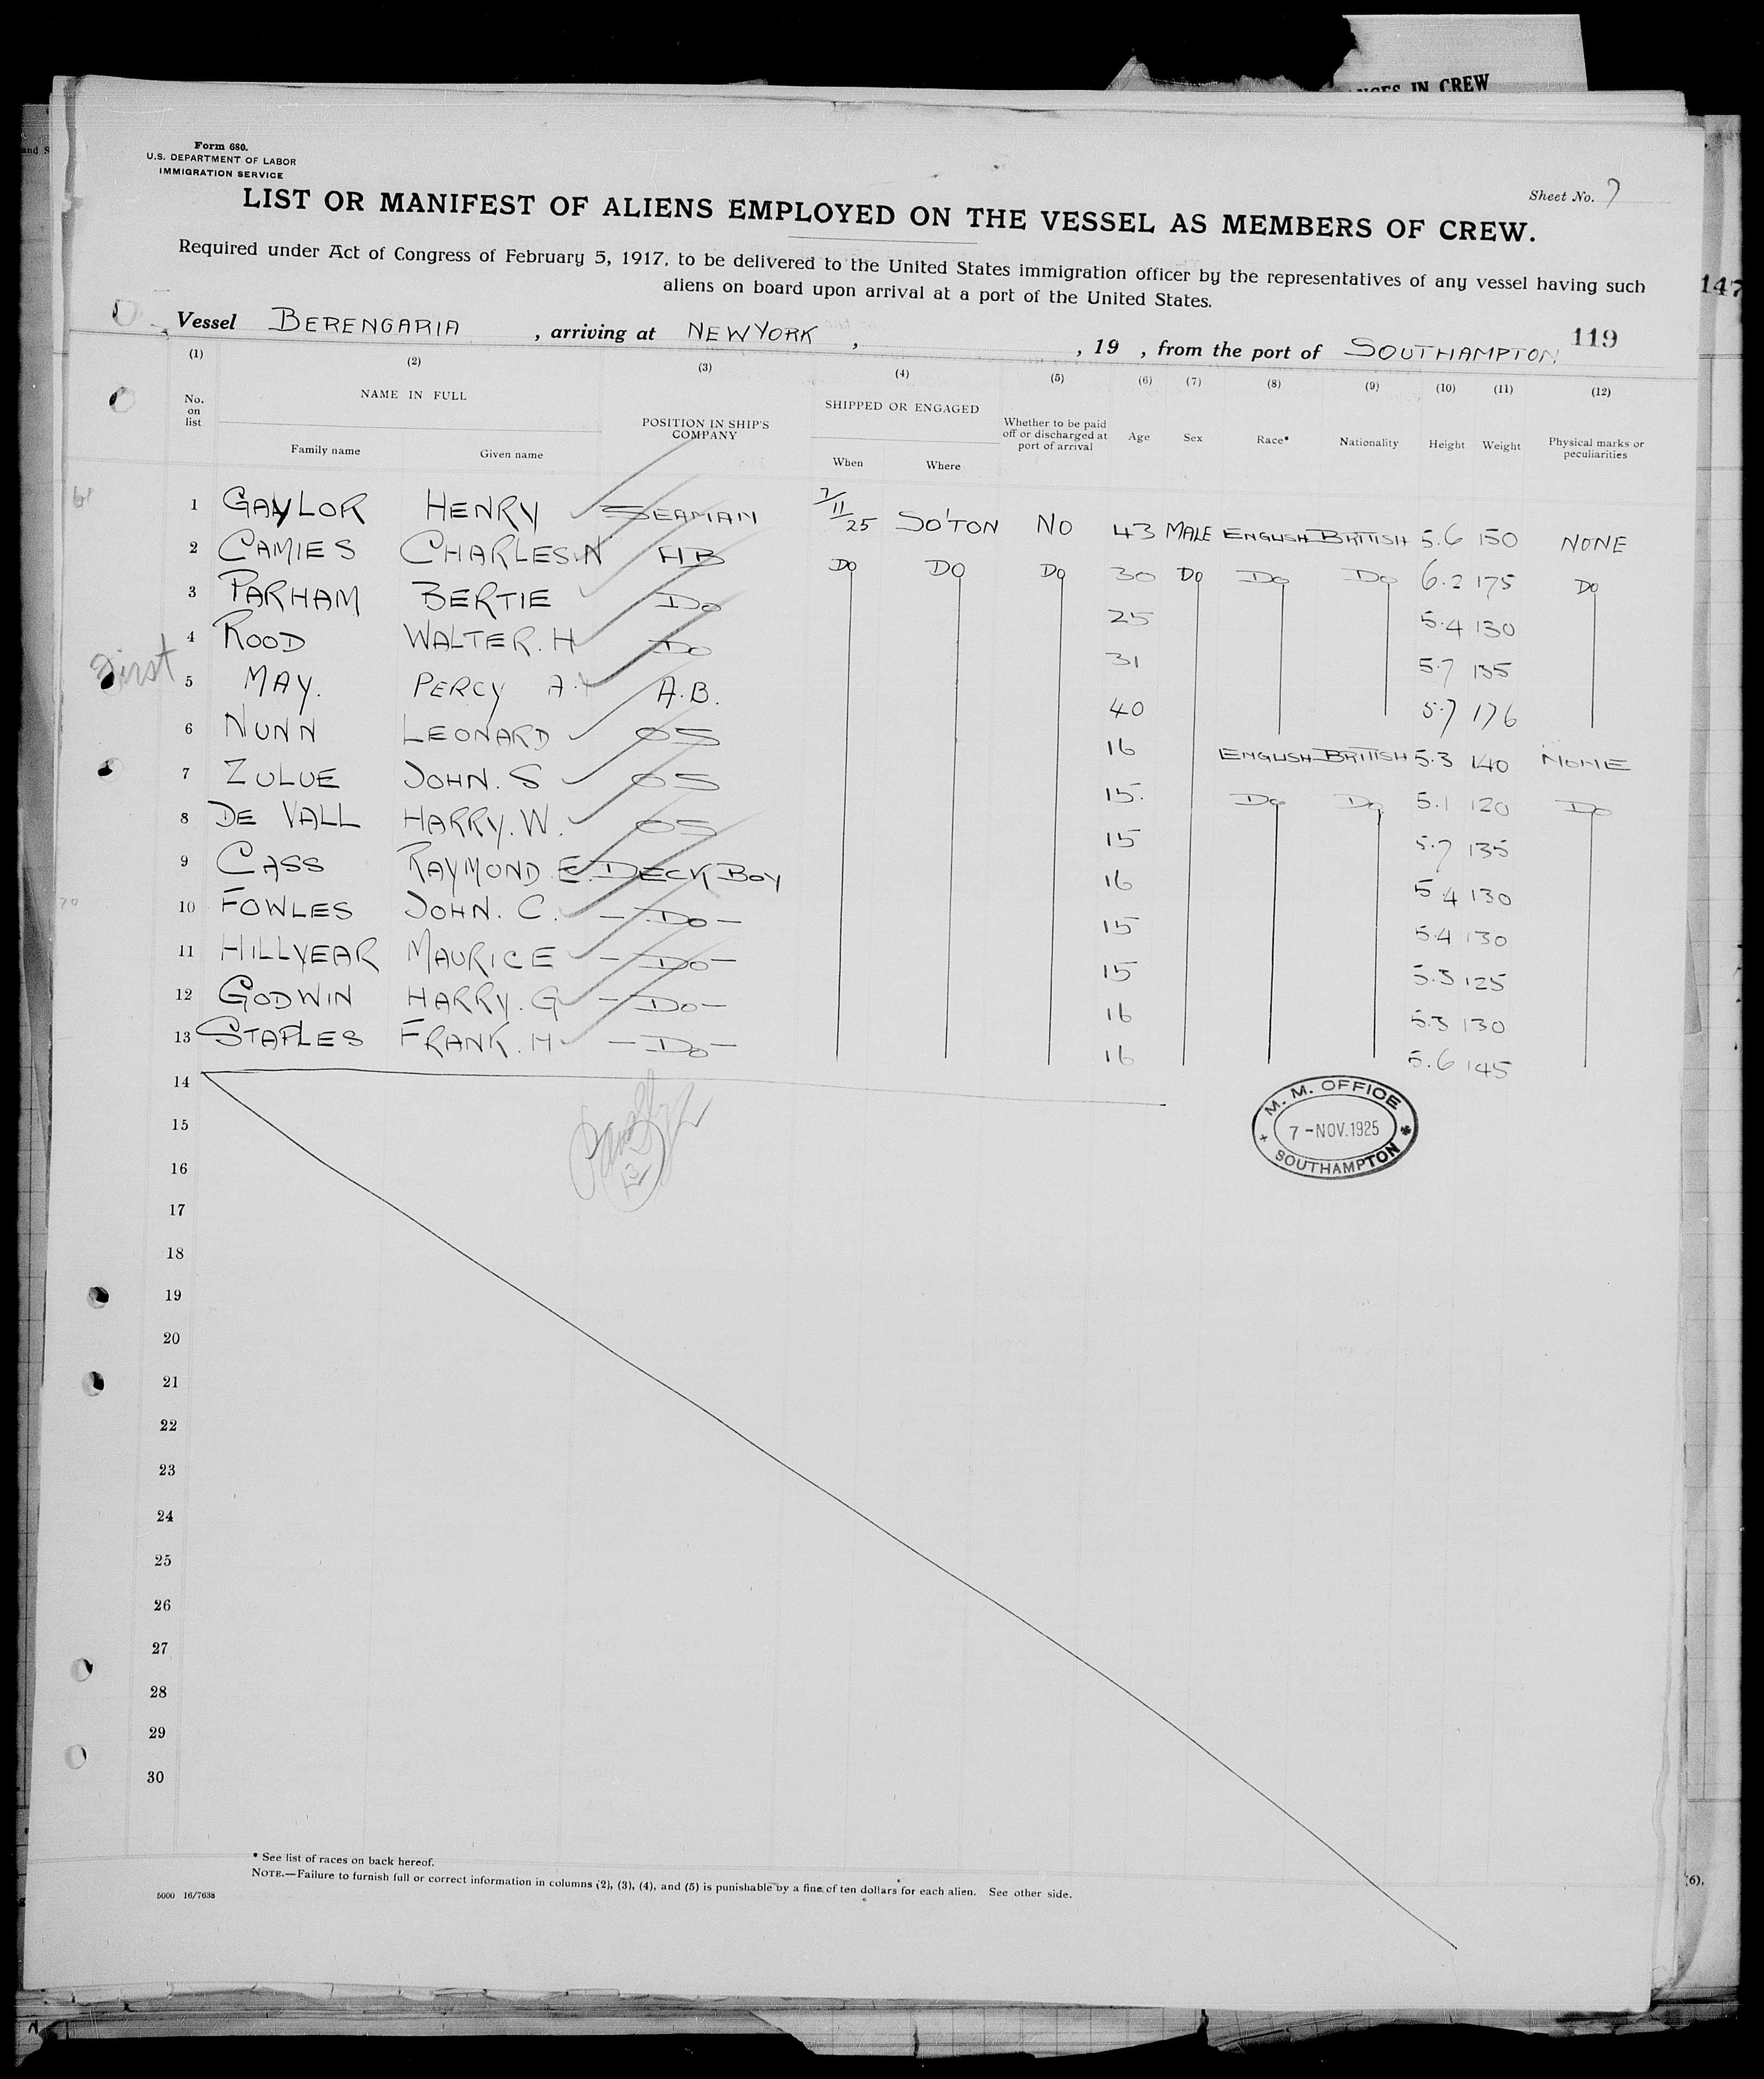 NGES IN CREW
and S
Form 680.
U.S. DEPARTMENT OF LABOR
IMMIGRATION SERVICE
Sheet No. 7
LIST OR MANIFEST OF ALIENS EMPLOYED ON THE VESSEL AS MEMBERS OF CREW.
Required under Act of Congress of February 5, 1917, to be delivered to the United States immigration officer by the representatives of any vessel having such
aliens on board upon arrival at a port of the United States.
147
119
Vessel BERENGARIA , arriving at NEW YORK , , 19 , from the port of SOUTHAMPTON
(1) (2) (3) (4) (5) (6) (7) (8) (9) (10) (11) (12)
No. on list NAME IN FULL POSITION IN SHIP'S COMPANY SHIPPED OR ENGAGED Whether to be paid off or discharged at port of arrival Age Sex Race* Nationality Height Weight Physical marks or peculiarities
Family name Given name When Where
1 GAYLOR HENRY SEAMAN 7/11/25 SO'TON NO 43 MALE ENGLISH BRITISH 5.6 150 NONE
2 CAMIES CHARLES.N AB DO DO DO 30 DO DO DO 6.2 175 DO
3 PARHAM BERTIE DO 25 5.4 130
4 ROOD WALTER.H DO 31 5.7 135
First
5 MAY. PERCY A. A.B. 40 5.7 176
6 NUNN LEONARD OS 16 ENGLISH BRITISH 5.3 140 NONE
7 ZULUE JOHN.S OS 15. DO DO 5.1 120 DO
8 DE VALL HARRY.W. OS 15 5.7 135
9 CASS RAYMOND E. DECK BOY 16 5.4 130
10 FOWLES JOHN.C. - DO - 15 5.4 130
11 HILLYEAR MAURICE - DO - 15 5.3 125
12 GODWIN HARRY.G - DO - 16 5.3 130
13 STAPLES FRANK.H - DO - 16 5.6 145
14
15
16
17
18
19
20
21
22
23
24
25
26
27
28
29
30
M. M. OFFICE
7 - NOV. 1925
SOUTHAMPTON
* See list of races on back hereof.
NOTE.—Failure to furnish full or correct information in columns (2), (3), (4), and (5) is punishable by a fine of ten dollars for each alien. See other side.
5000 16/7638
(6),